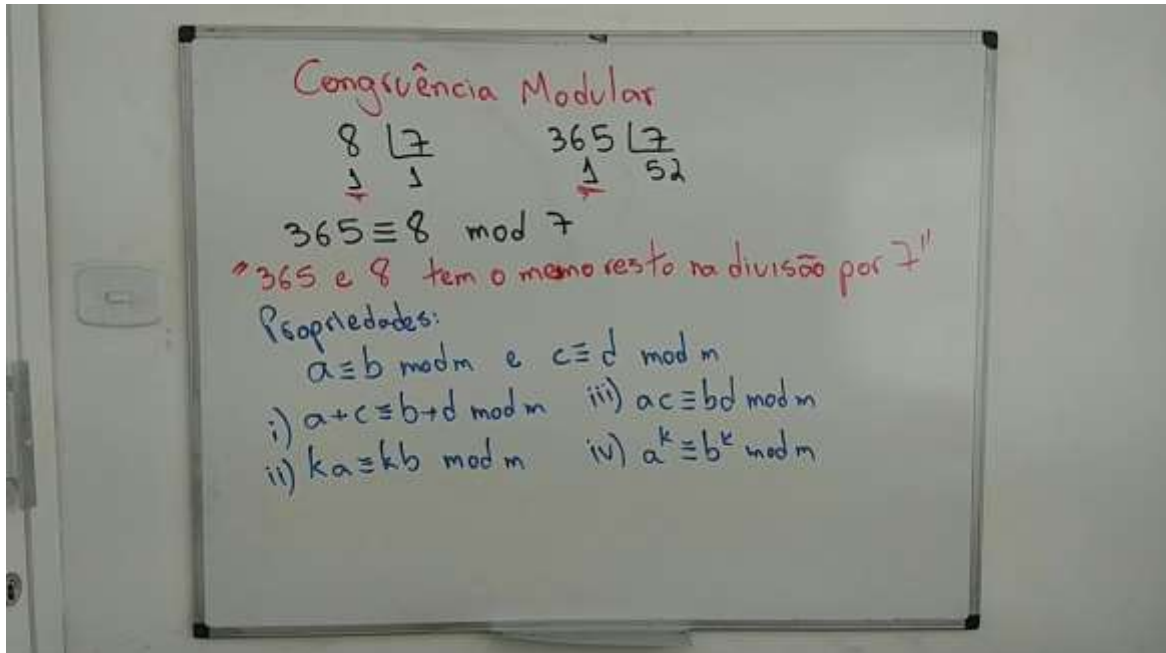 Congruência Modular
8 7 365 7
1 1 1 52
365 ≡ 8 mod 7
"365 e 8 tem o memo resto na divisão por 7"
Propriedades:
a ≡ b mod m e c ≡ d mod m
i) a + c ≡ b + d mod m iii) ac ≡ bd mod m
ii) ka ≡ kb mod m iv) a^k ≡ b^k mod m